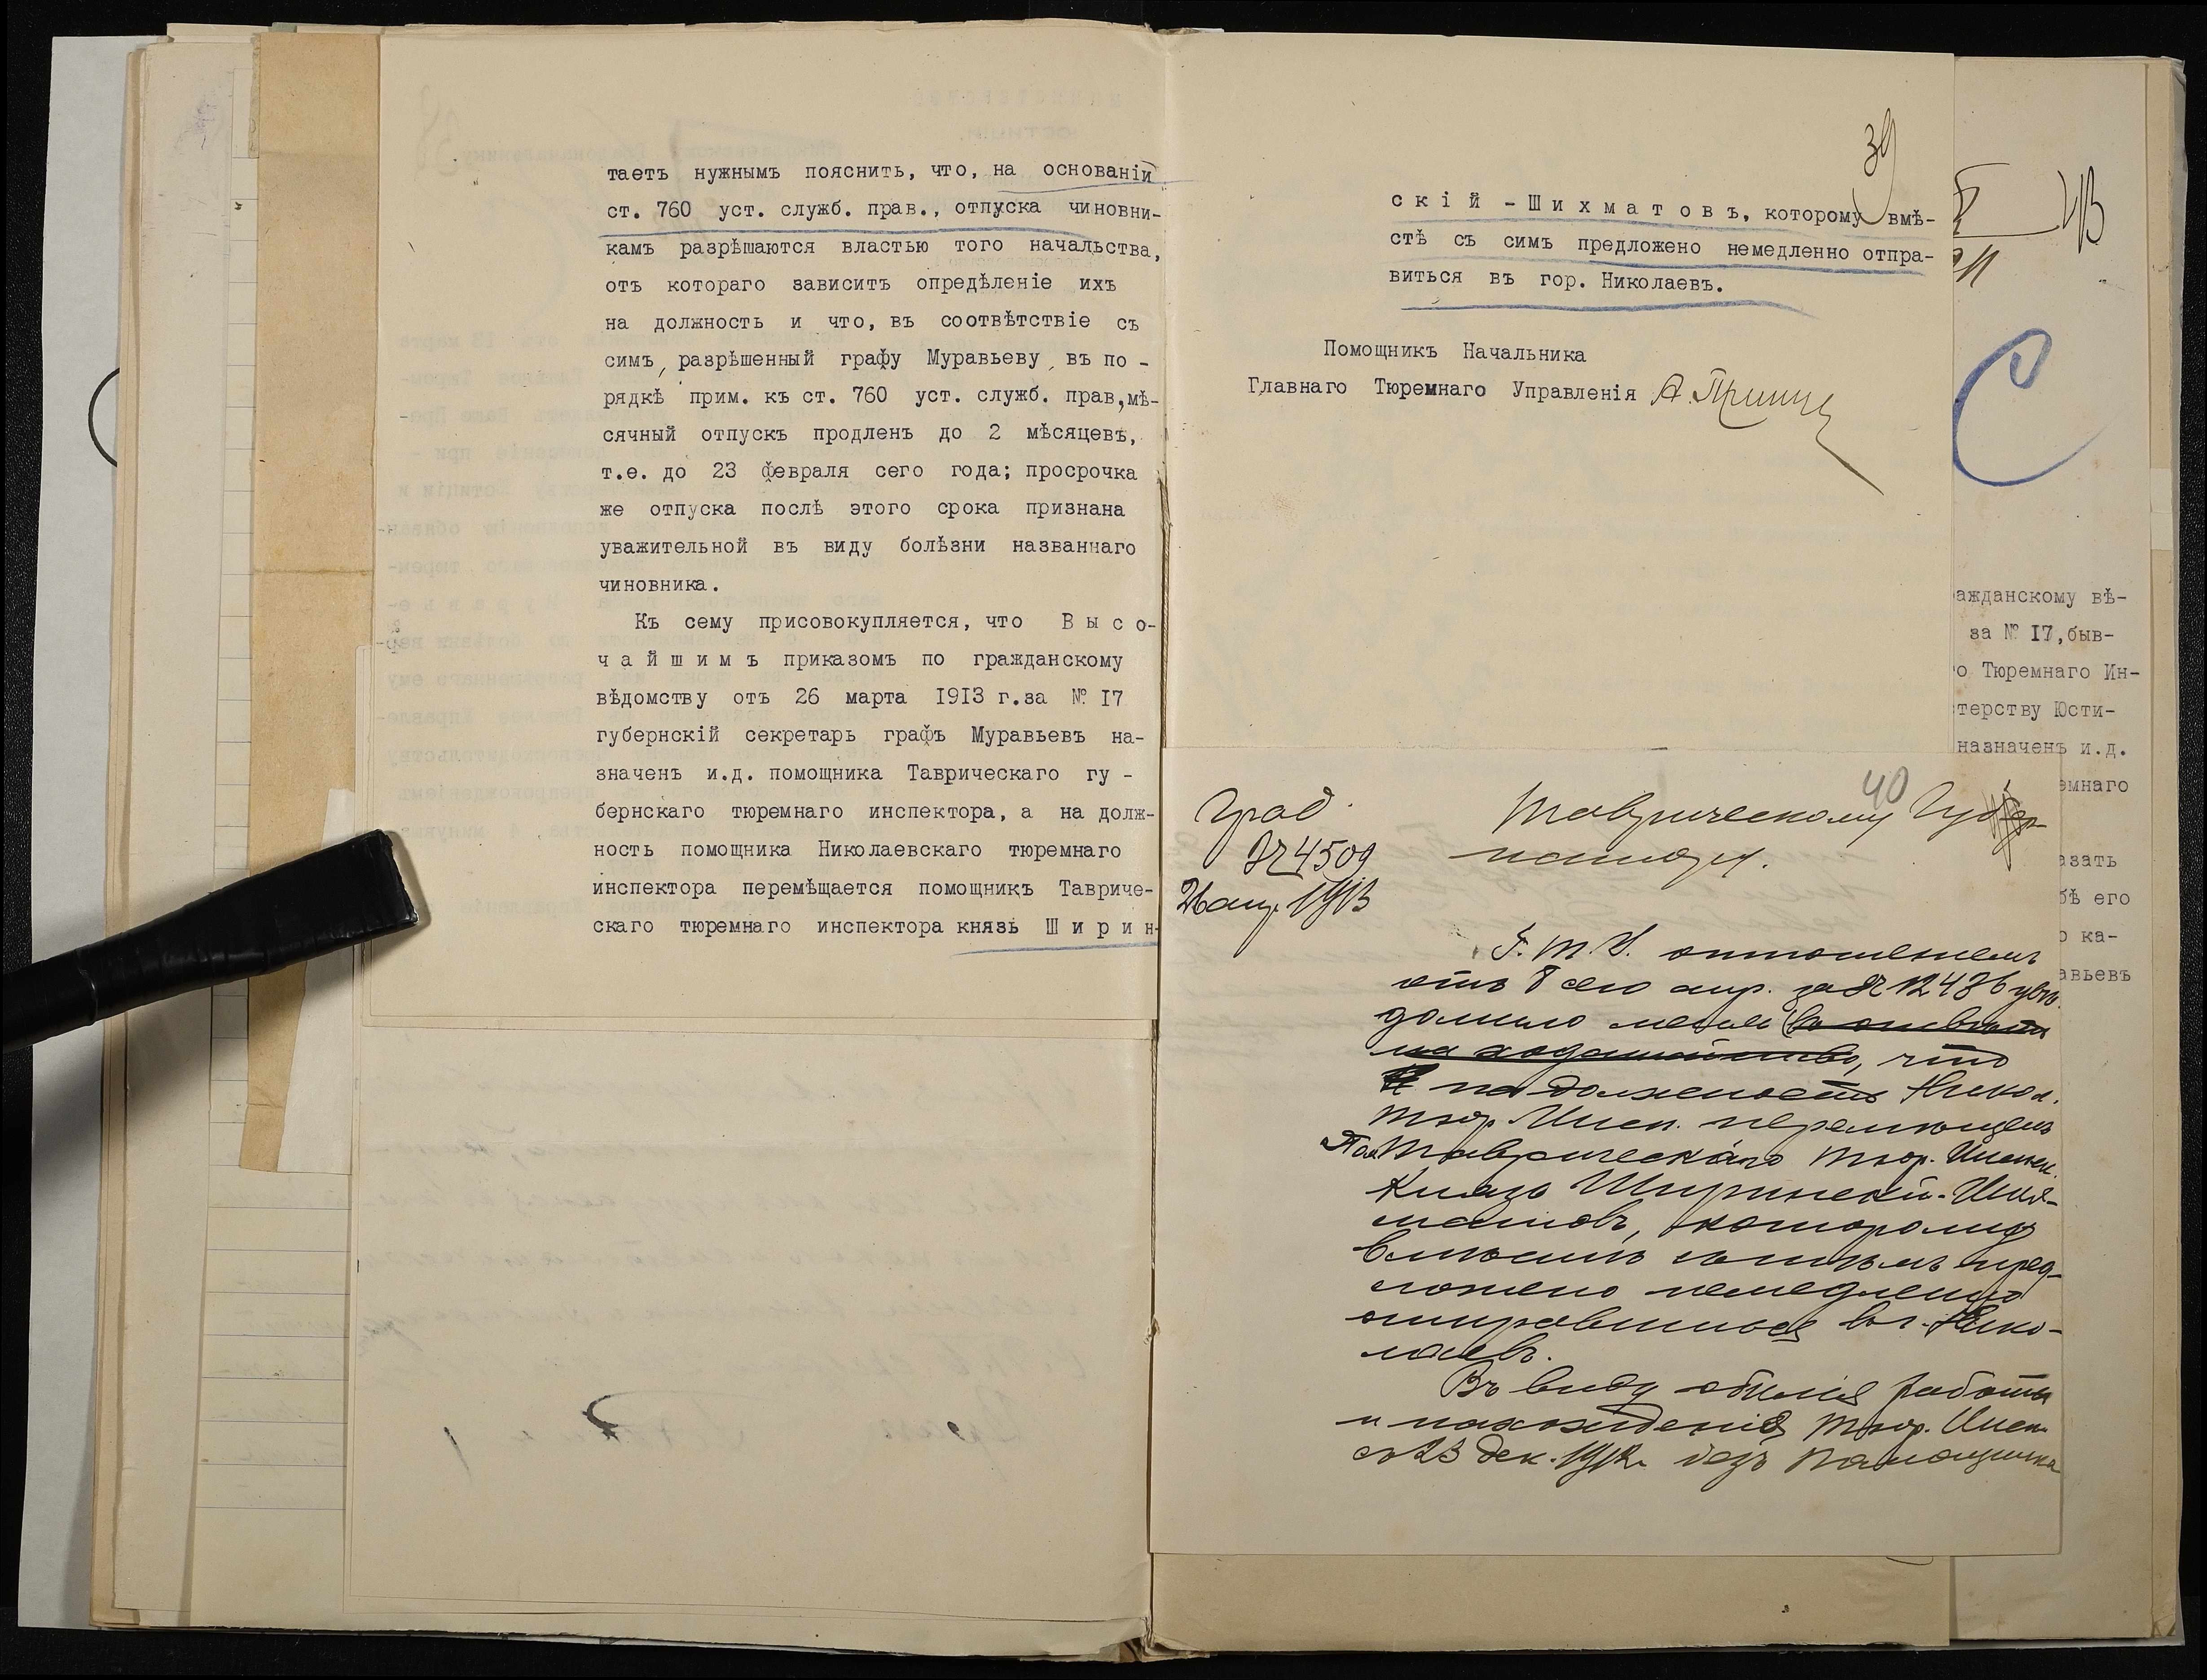 таетъ нужнымъ пояснить, что, на основаніи
ст. 760 уст. служб. прав., отпуска чиновни-
камъ разрѣшаются властью того начальства,
отъ котораго зависитъ опредѣленіе ихъ
на должность и что, въ соотвѣтствіе съ
симъ, разрѣшенный графу Муравьеву, въ по -
рядкѣ прим. къ ст. 760 уст. служб. прав, мѣ-
сячный отпускъ продленъ до 2 мѣсяцевъ,
т.е. до 23 февраля сего года; просрочка
же отпуска послѣ этого срока признана
уважительной въ виду болѣзни названнаго
чиновника.
Къ сему присовокупляется, что Высо-
чайшимъ приказомъ по гражданскому
вѣдомству отъ 26 марта 1913 г. за № 17
губернскій секретарь графъ Муравьевъ на-
значенъ и.д. помощника Таврическаго гу -
бернскаго тюремнаго инспектора, а на долж-
ность помощника Николаевскаго тюремнаго
инспектора перемѣщается помощникъ Тавриче-
скаго тюремнаго инспектора князь Ширин-
39
скій - Шихматовъ, которому вмѣ-
стѣ съ симъ предложено немедленно отпра-
виться въ гор. Николаевъ.
Помощникъ Начальника
Главнаго Тюремнаго Управленія
40
Град.
№ 4509
26 апр. 1913
Таврическому Губер-
натору.
Г. Т. У. отношеніемъ
отъ 8 сего апр. за № 12486 увѣ-
домило меня (въ отвѣтъ
на ходатайство, что
на должность Никол.
Тюр. Инсп. перемѣщенъ
Пом Таврическаго Тюр. Инспек.
Князь Ширинскій-Ших-
матовъ, которому
вмѣстѣ съ тѣмъ пред-
ложено немедленно
отправиться въ г. Нико-
лаевъ.
Въ виду обилія работы
и нахожденія Тюр. Инсп
съ 23 дек. 1912 г. безъ Помощника
ажданскому вѣ-
за № 17, быв-
о Тюремнаго Ин-
терству Юсти-
назначенъ и.д.
емнаго
азать
бѣ его
о ка-
авьевъ